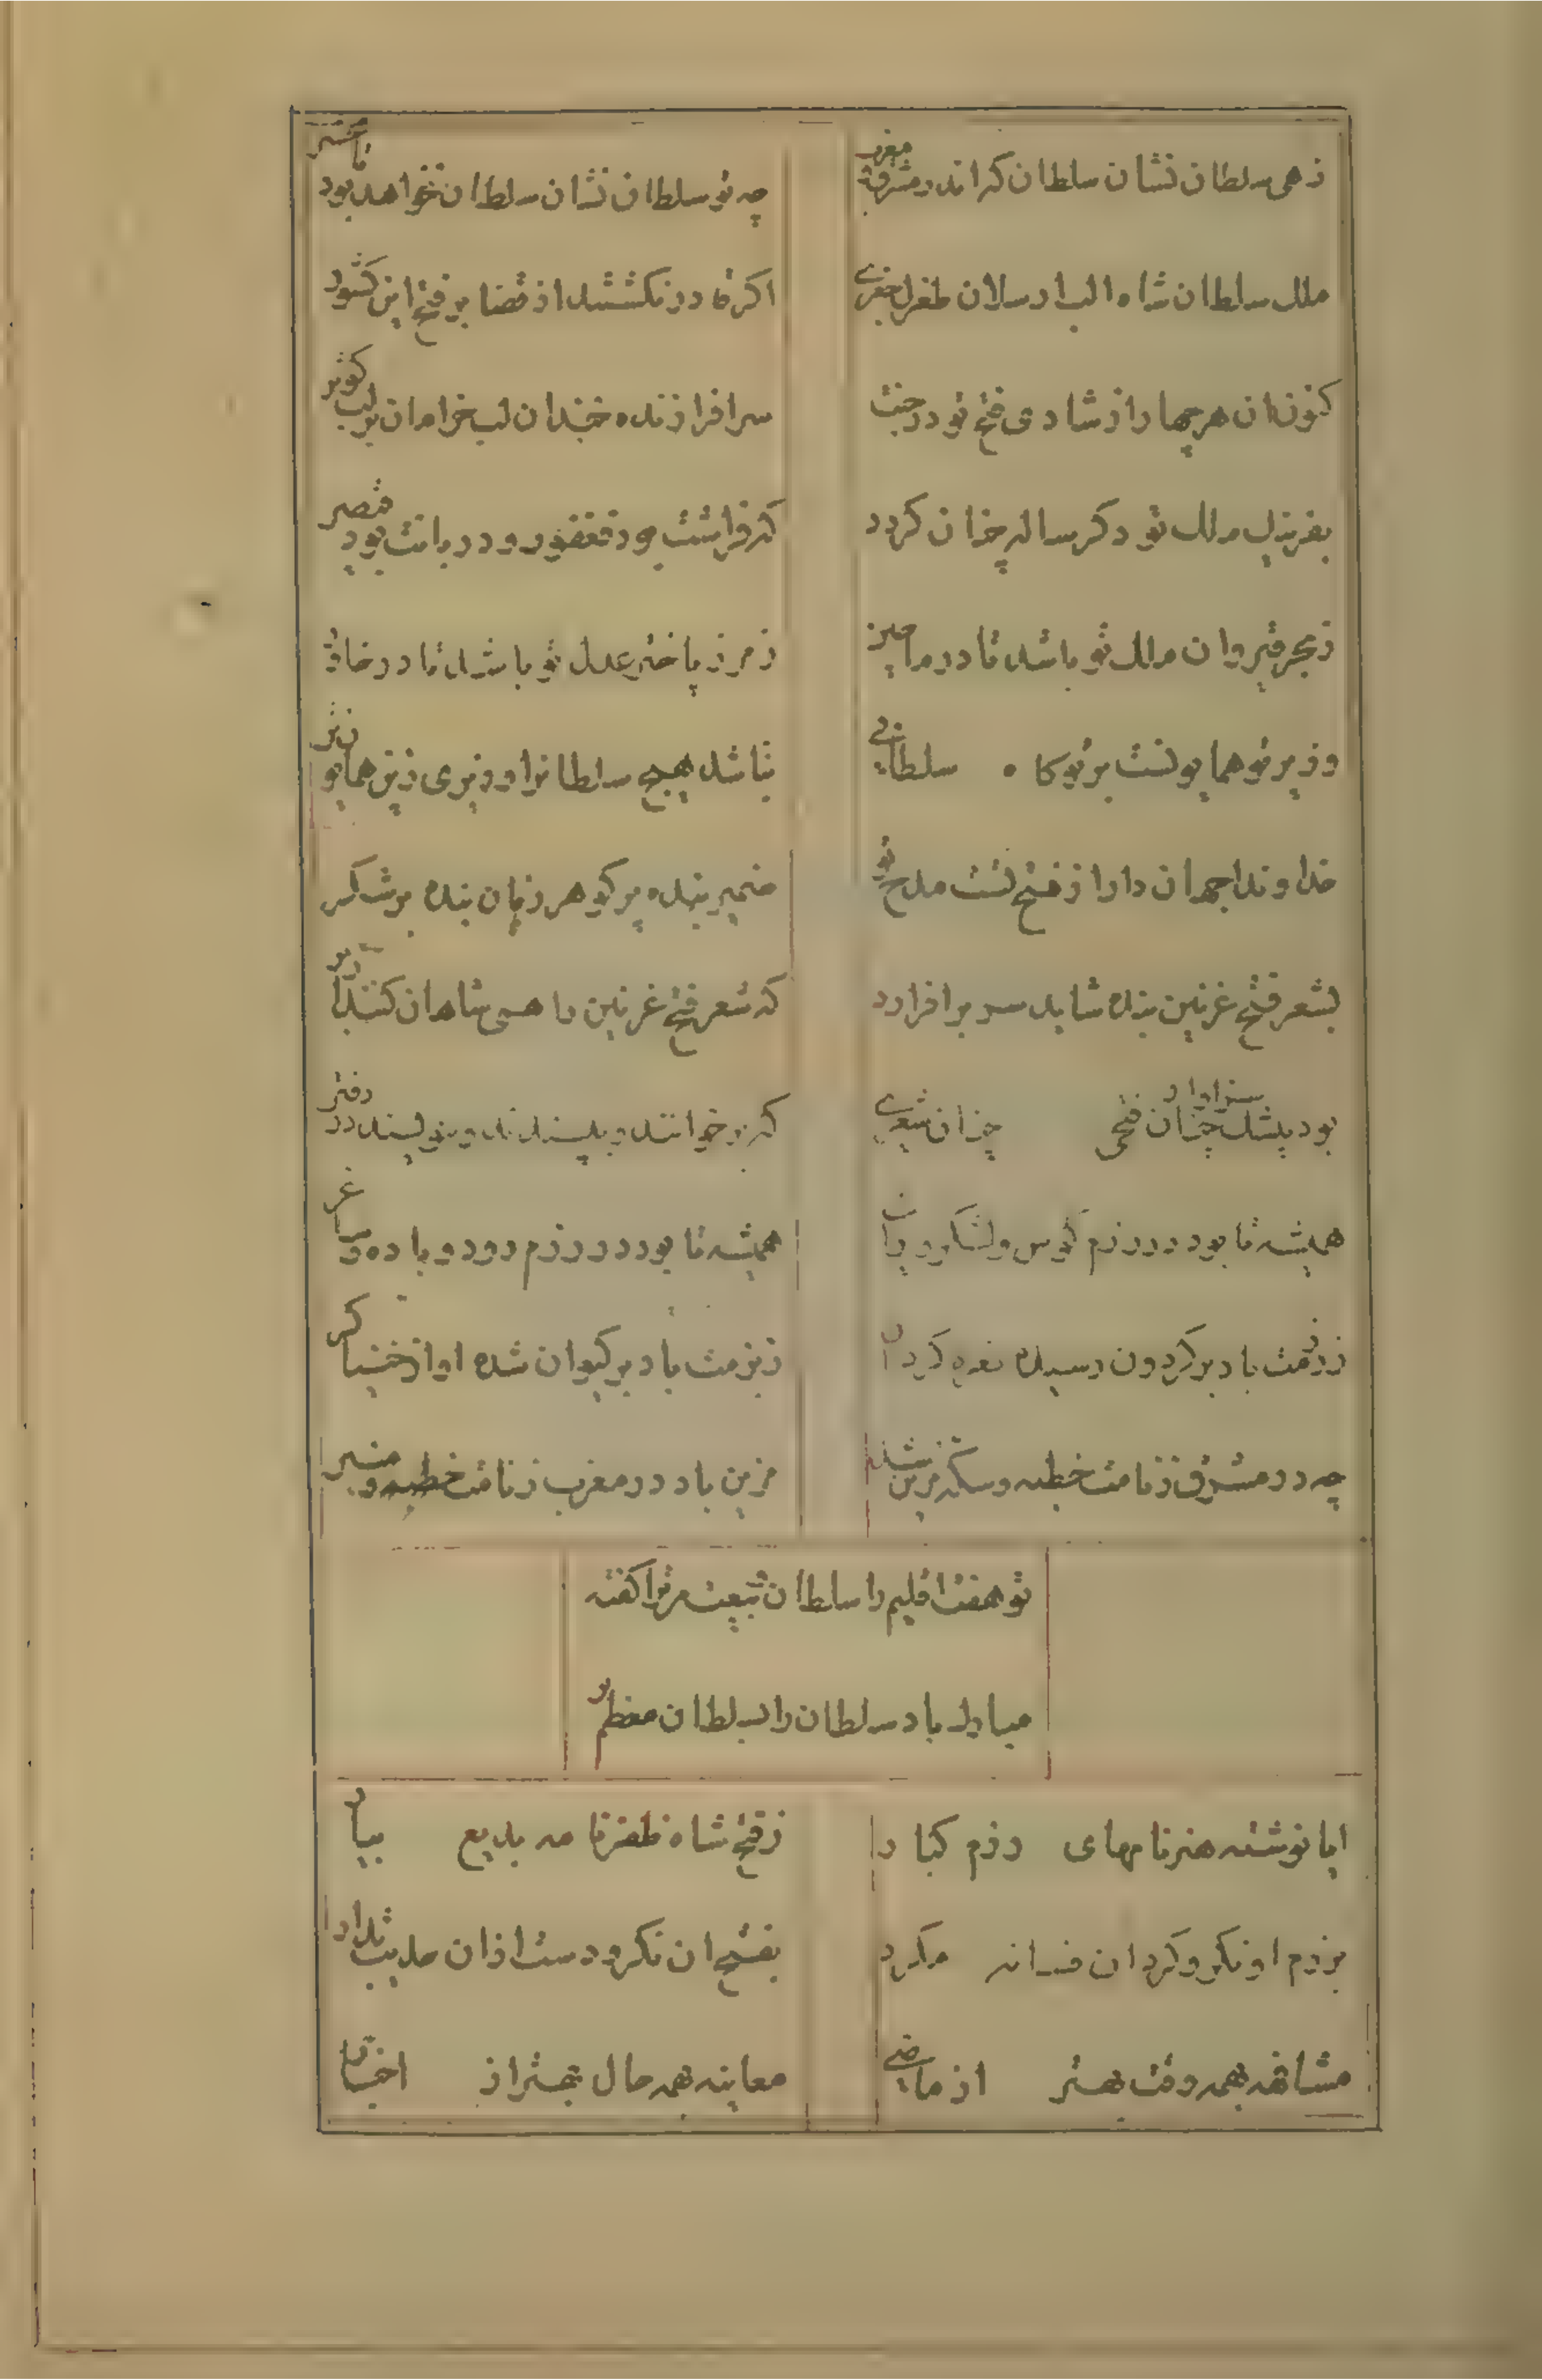 زهی سلطان نشان سلطان که اندر مشرق و مغرب
چه تو سلطان نشان سلطان نخواهد بود تا محشر
ملک سلطان شاه الب ارسلان طغرل جغری
اکر قادر نکشتند از قضا بر فتح این کشور
کنون ان هر چهار از شادی فتح تو در جنت
سرافرازنده خندان لب خرامان بر لب کوثر
بغزنین ملک تو دکر ساله چنان کردد
که فراشت بود فغفور و دربانت بود قیصر
ز بحر قیروان ملک تو باشد تا در ماچین
ز مرز باختر عدل تو باشد تا در خاور
وزیر تو همایونست بر تو کاه سلطانی
نباشد هیچ سلطانرا وزیری زین همایون تر
خداوندا جهان دارا ز فتح تست مدح تو
ضمیر بنده پر کوهر زبان بنده پر شکر
بشعر فتح غزنین بنده شاید سر بر افرازد
که شعر فتح غزنین را همی شاهان کنند از بر
بود بیشک چنان فتحی سزاوار چنان شعری
که بر خوانند و بپسندند و بنویسند در دفتر
همیشه تا بود در رزم کوس و لشکر و پیکان
همیشه تا بود در بزم رود و باده و ساغر
ز رزمت باد بر کردون رسیده نعره کردان
ز بزمت باد بر کیوان شده اواز خنیاکر
چه در مشرق ز نامت خطبه و سکه مزین شد
مزین باد در مغرب ز نامت خطبه و منبر
تو هفت اقلیم را سلطان تبیعت مر ترا کفته
مبارک باد سلطان را سلطان معظم بر
ایا نوشته هنرنامهای رزم کبار
ز فتح شاه ظفرنامه بدیع بیار
برزم او نکر و کرد ان فسانه مکرد
بفتح ان نکر و دست از ان حدیث بدار
مشافهه بهمه وقت بهتر از ماضی
معاینه بهمه حال بهتر از اخبار